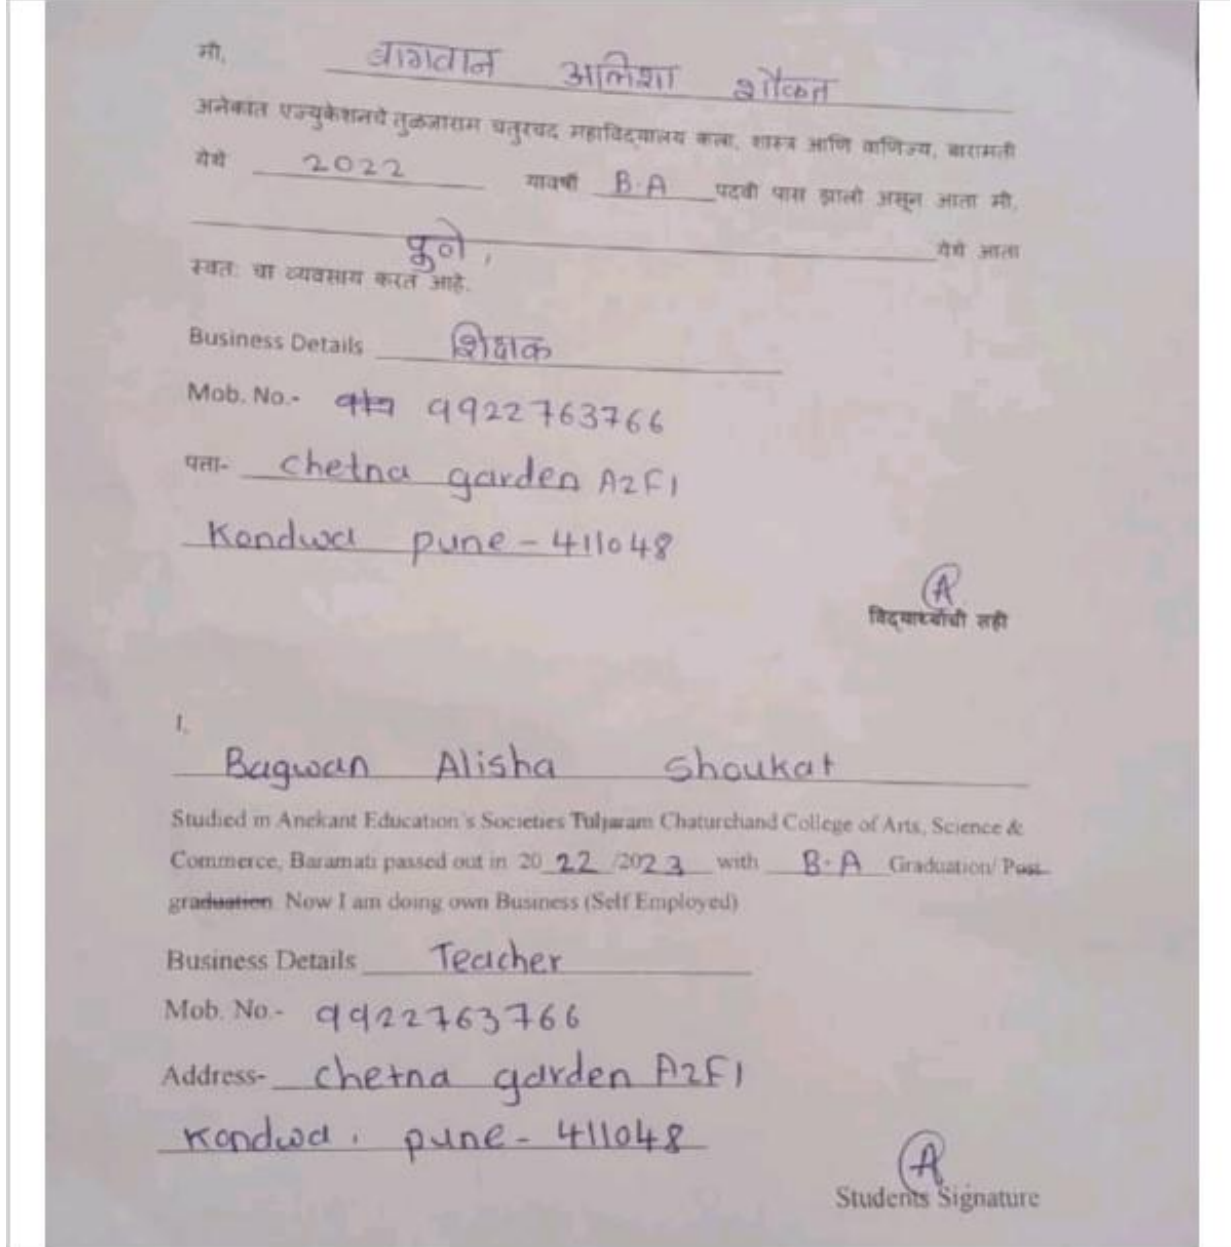 मी, बागवान अलिशा शौकत
अनेकांत एज्युकेशनचे तुळजाराम चतुरचंद महाविद्यालय कला, शास्त्र आणि वाणिज्य, बारामती
येथे 2022 यावर्षी B.A पदवी पास झालो असून आता मी,
पुणे, येथे आता
स्वतः चा व्यवसाय करत आहे.
Business Details शिक्षक
Mob. No.- 9922763766
पत्ता- chetna garden A2F1
Kondwa pune - 411048
विद्यार्थ्याची सही
I,
Bagwan Alisha Shoukat
Studied in Anekant Education's Societies Tuljaram Chaturchand College of Arts, Science &
Commerce, Baramati passed out in 20 22 /2023 with B.A Graduation/ Post
graduation. Now I am doing own Business (Self Employed)
Business Details Teacher
Mob. No.- 9922763766
Address- chetna garden A2F1
Kondwa, pune - 411048
A
Students Signature